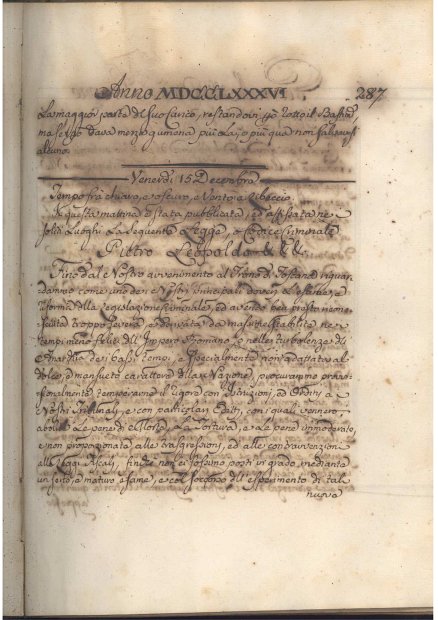 Anno MDCCLXXXVI. 287
La maggior parte del suo Carico, restandovi già rotto il Bastimᵗᵒ
ma Scafo dava mezza gumena più Là, o più qua non salvavasi
alcuno.
Venerdì 15 Decembre
Tempo frà chiaro, e oscuro, e Vento a Libeccio.
In questa mattina è stata pubblicata, ed affissata ne
soliti Luoghi La seguente Legge, o Codice Criminale
Pietro Leopoldo & & &.
Fino dal Nostro avvenimento al Trono di Toscana riguar-
dammo come uno dei Nostri principali doveri L'esame, e
riforma della Legislazione Criminale, ed avendola ben presto ricono-
sciuta troppo severa, e derivata da massime stabilite ne
tempi meno felici dell'Impero Romano, o nelle turbolenze dell'
Anarchia dei bassi tempi, e specialmente non adattata al
dolce, e mansueto carattere della Nazione, procurammo provvi-
sionalmente temperarne il rigore con Istruzioni, ed Ordini a
Nostri Tribunali, e con particolari Editti, con i quali vennero
abolite Le pene di Morte, La Tortura, e Le pene immoderate,
e non proporzionate alle trasgressioni, ed alle contravvenzioni
alle Leggi Fiscali, finchè non ci fossimo posti in grado, mediante
un serio, e maturo esame, e col soccorso dell'esperimento di tal
nuova